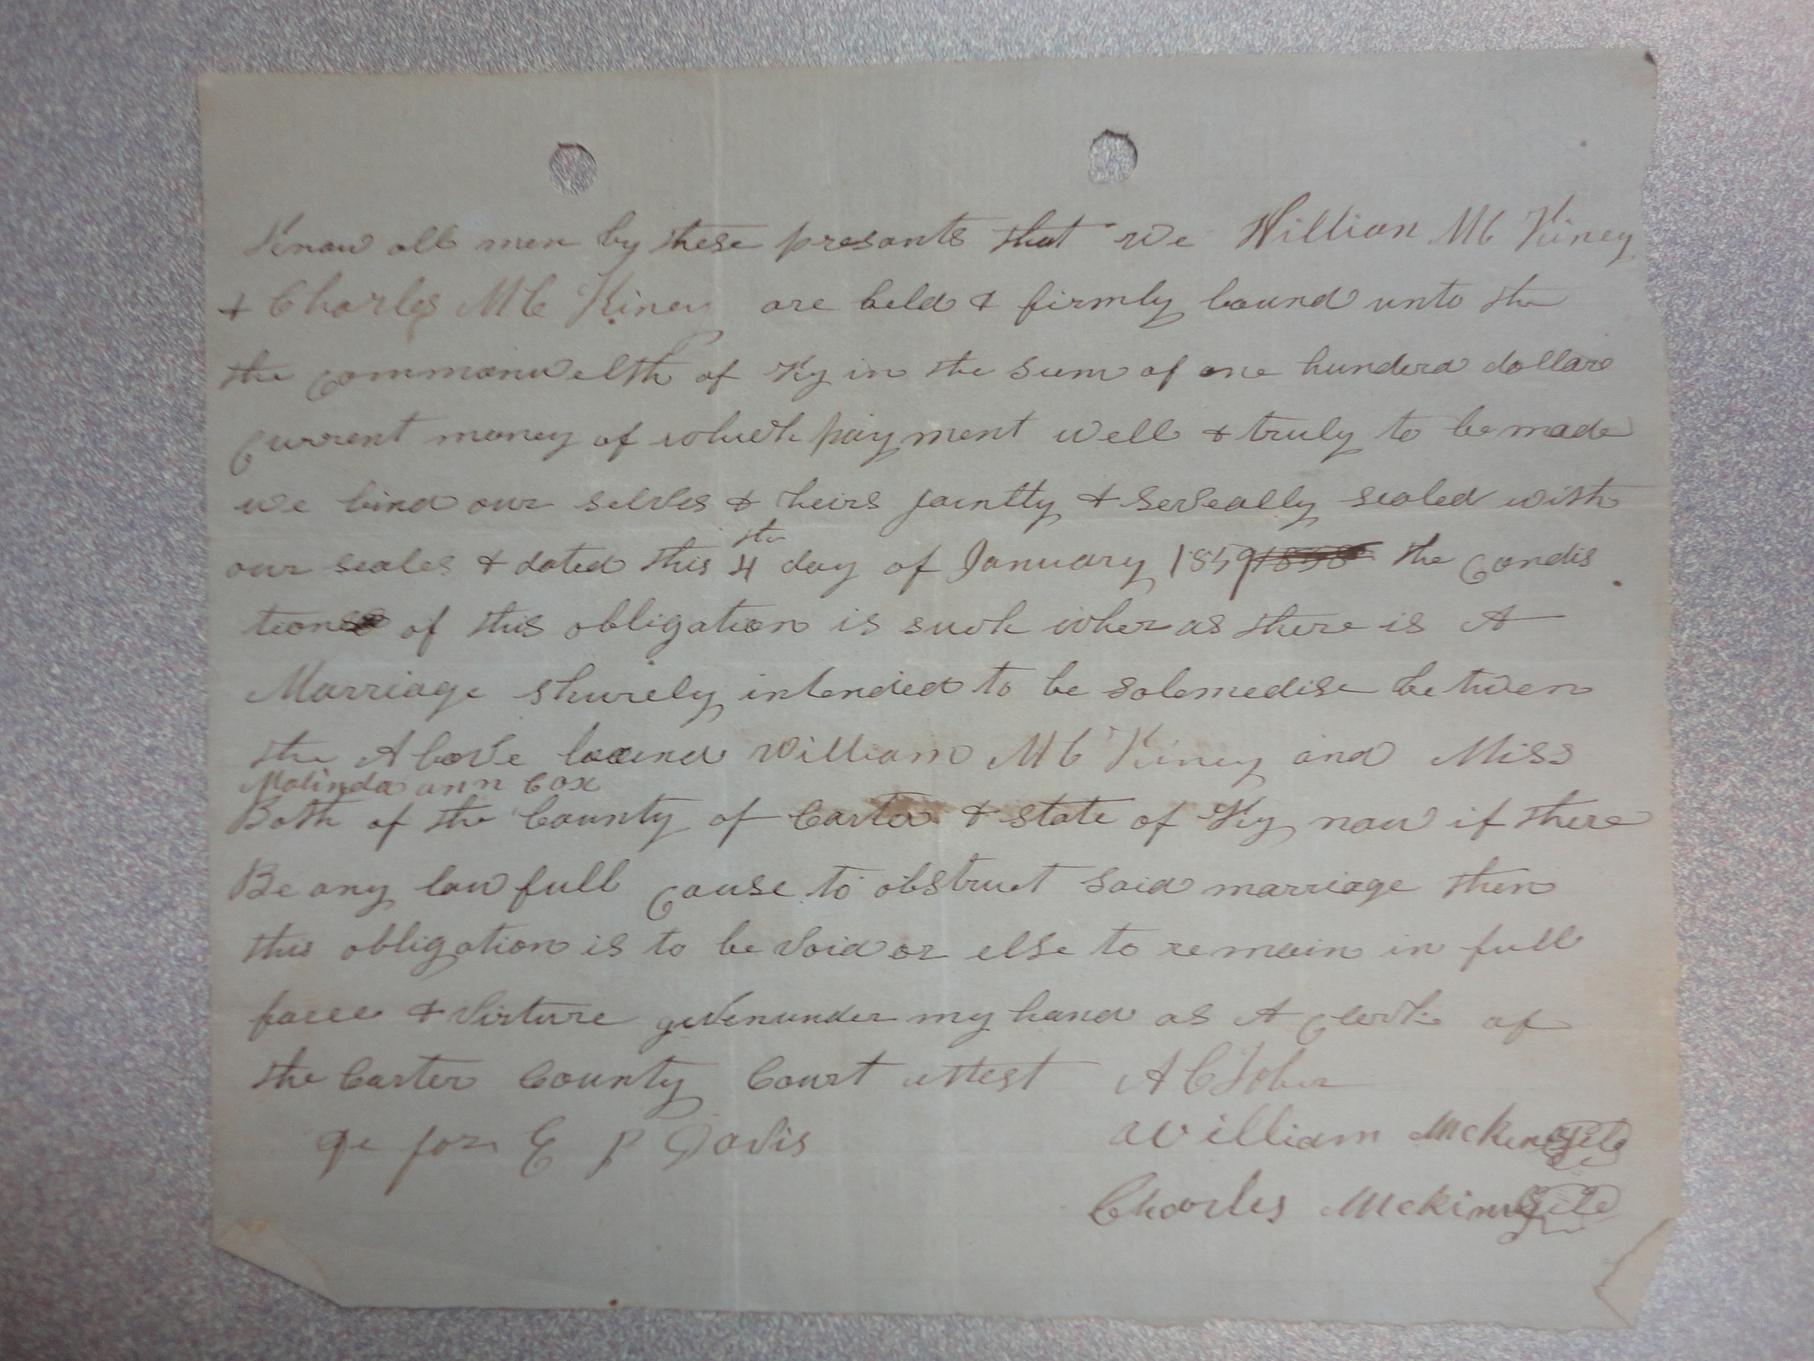 Know all men by these presants that we William Mc Kiney
& Charles Mc Kiney are held & firmly bound unto the
the commonwelth of Ky in the sum of one hunderd dollars
current money of which payment well & truly to be made
we bind our selves & heirs jointly & severally sealed with
our seales & dated this 4th day of January 1859 1858 the condis
tions of this obligation is such wher as there is A
Marriage shurely intended to be solemedise betwen
the Above bound William Mc Kiney and Miss
Malinda ann Cox
Both of the County of Carter & state of Ky now if there
Be any lawfull cause to obstruct said marriage then
this obligation is to be void or else to remain in full
force & virture given under my hand as A clerk of
the Carter County Court attest A C
for E P Davis William Mckiney
Charles Mckiney